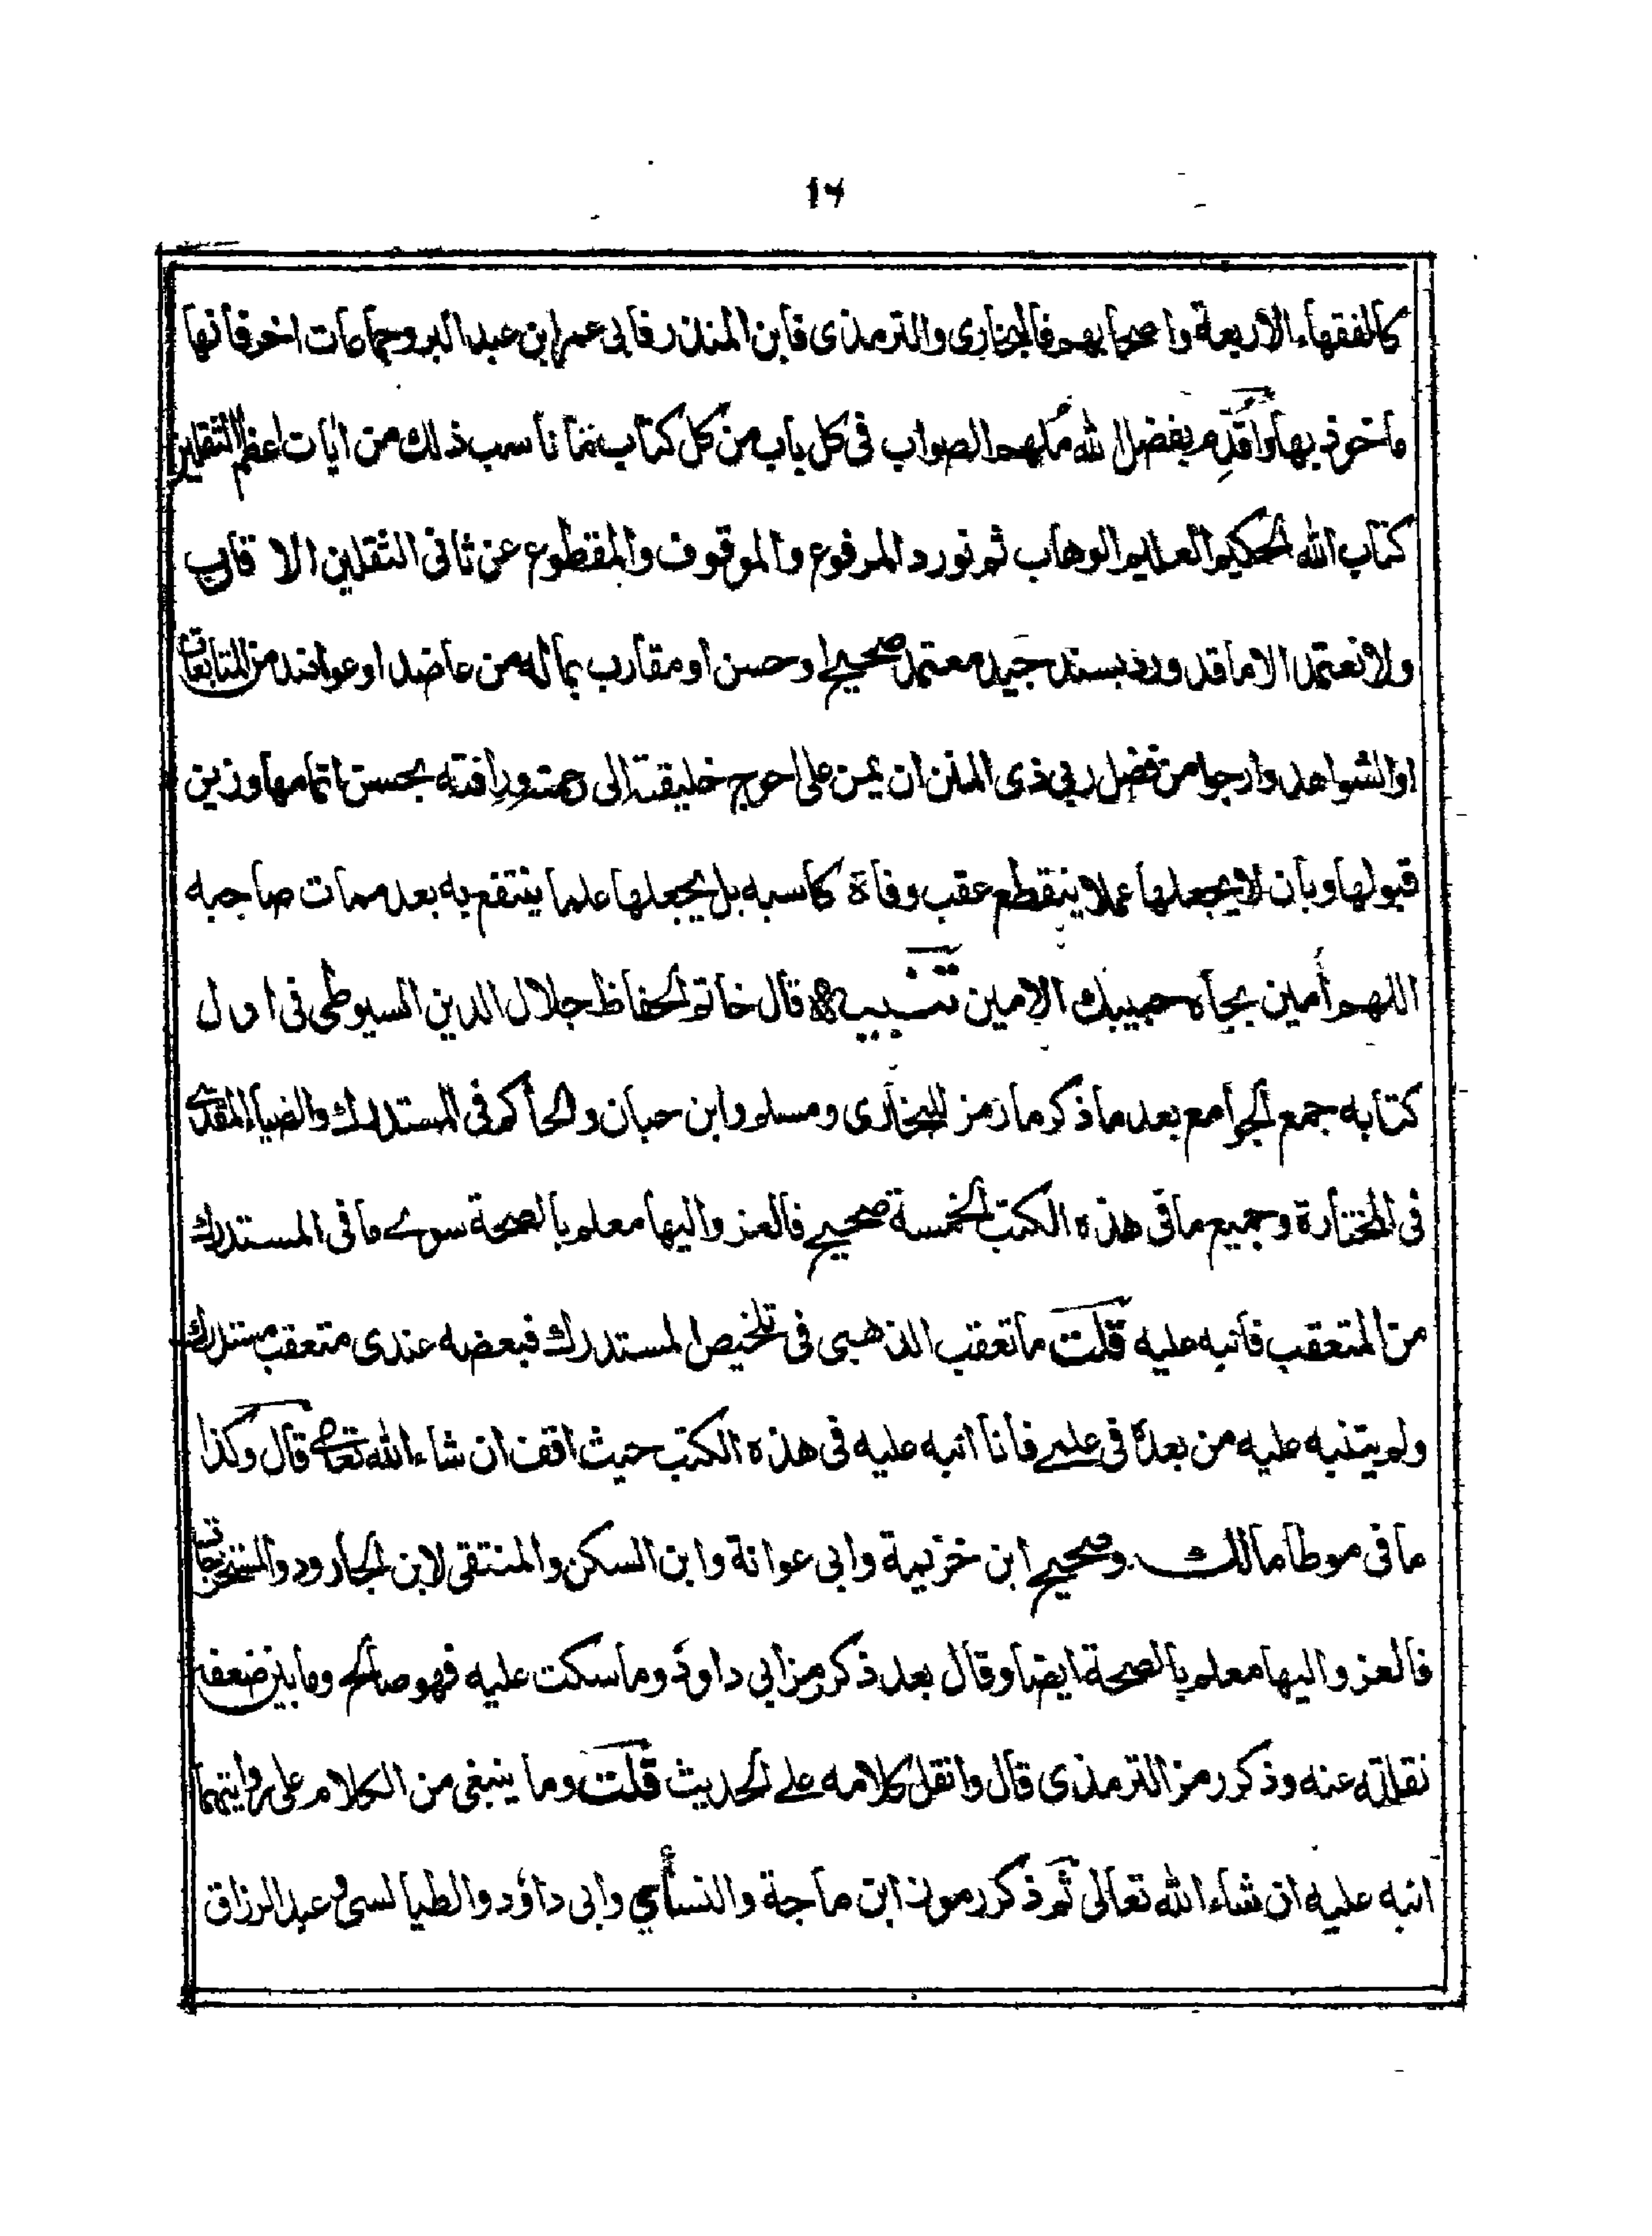 ١٦
كالفقهاء الاربعة واصحابهم فالبخارى والترمذى فابن المنذر فابى عمر ابن عبد البر وجماعات اخر فانها
ماخوذ بها واقدم بفضل الله ملهم الصواب فى كل باب من كل كتاب ما ناسب ذلك من ايات اعظم الثقلين
كتاب الله الحكيم العليم الوهاب ثم نورد المرفوع والموقوف والمقطوع عن ثانى الثقلين الا قارب
ولا نعتمد الا ما قد ورد بسند جيد معتمد صحيح او حسن او مقارب بما له من عاضد او عواضد من المتابعات
او الشواهد وارجا من فضل ربى ذى المنن ان يمن على احوج خليقته الى رحمته ورافته بحسن اتمامها وزين
قبولها وبان لا يجعلها عملا ينقطع عقب وفاة كاسبه بل يجعلها علما ينتفع به بعد ممات صاحبه
اللهم أمين بجاه حبيبك الامين تنبيه قال خاتم الحفاظ جلال الدين السيوطى فى اول
كتابه جمع الجوامع بعد ما ذكر ما رمز للبخارى ومسلم وابن حبان والحاكم فى المستدرك والضياء المقدسے
فى المختارة وجميع ما فى هذه الكتب الخمسة صحيح فالعزو اليها معلم بالصحة سوے ما فى المستدرك
من المتعقب فانبه عليه قلت ما تعقب الذهبى فى تلخيص المستدرك فبعضه عندى متعقب مستدرك
ولم يتنبه عليه من بعدہ فى علمے فانا انبه عليه فى هذه الكتب حيث اقف ان شاء الله تعالے قال وكذا
ما فى موطا مالك وصحيح ابن خزيمة وابى عوانة وابن السكن والمنتقى لابن الجارود والمستخرجات
فالعزو اليها معلم بالصحة ايضا وقال بعد ذكر رمز ابى داود وما سكت عليه فهو صالح وما بين ضعفه
نقلته عنه وذكر رمز الترمذى قال وانقل كلامه علے الحديث قلت وما ينبغى من الكلام على روايتهما
انبه عليه ان شاء الله تعالى ثم ذكر رموز ابن ماجة والنسائي وابى داؤد والطيالسى وعبد الرزاق